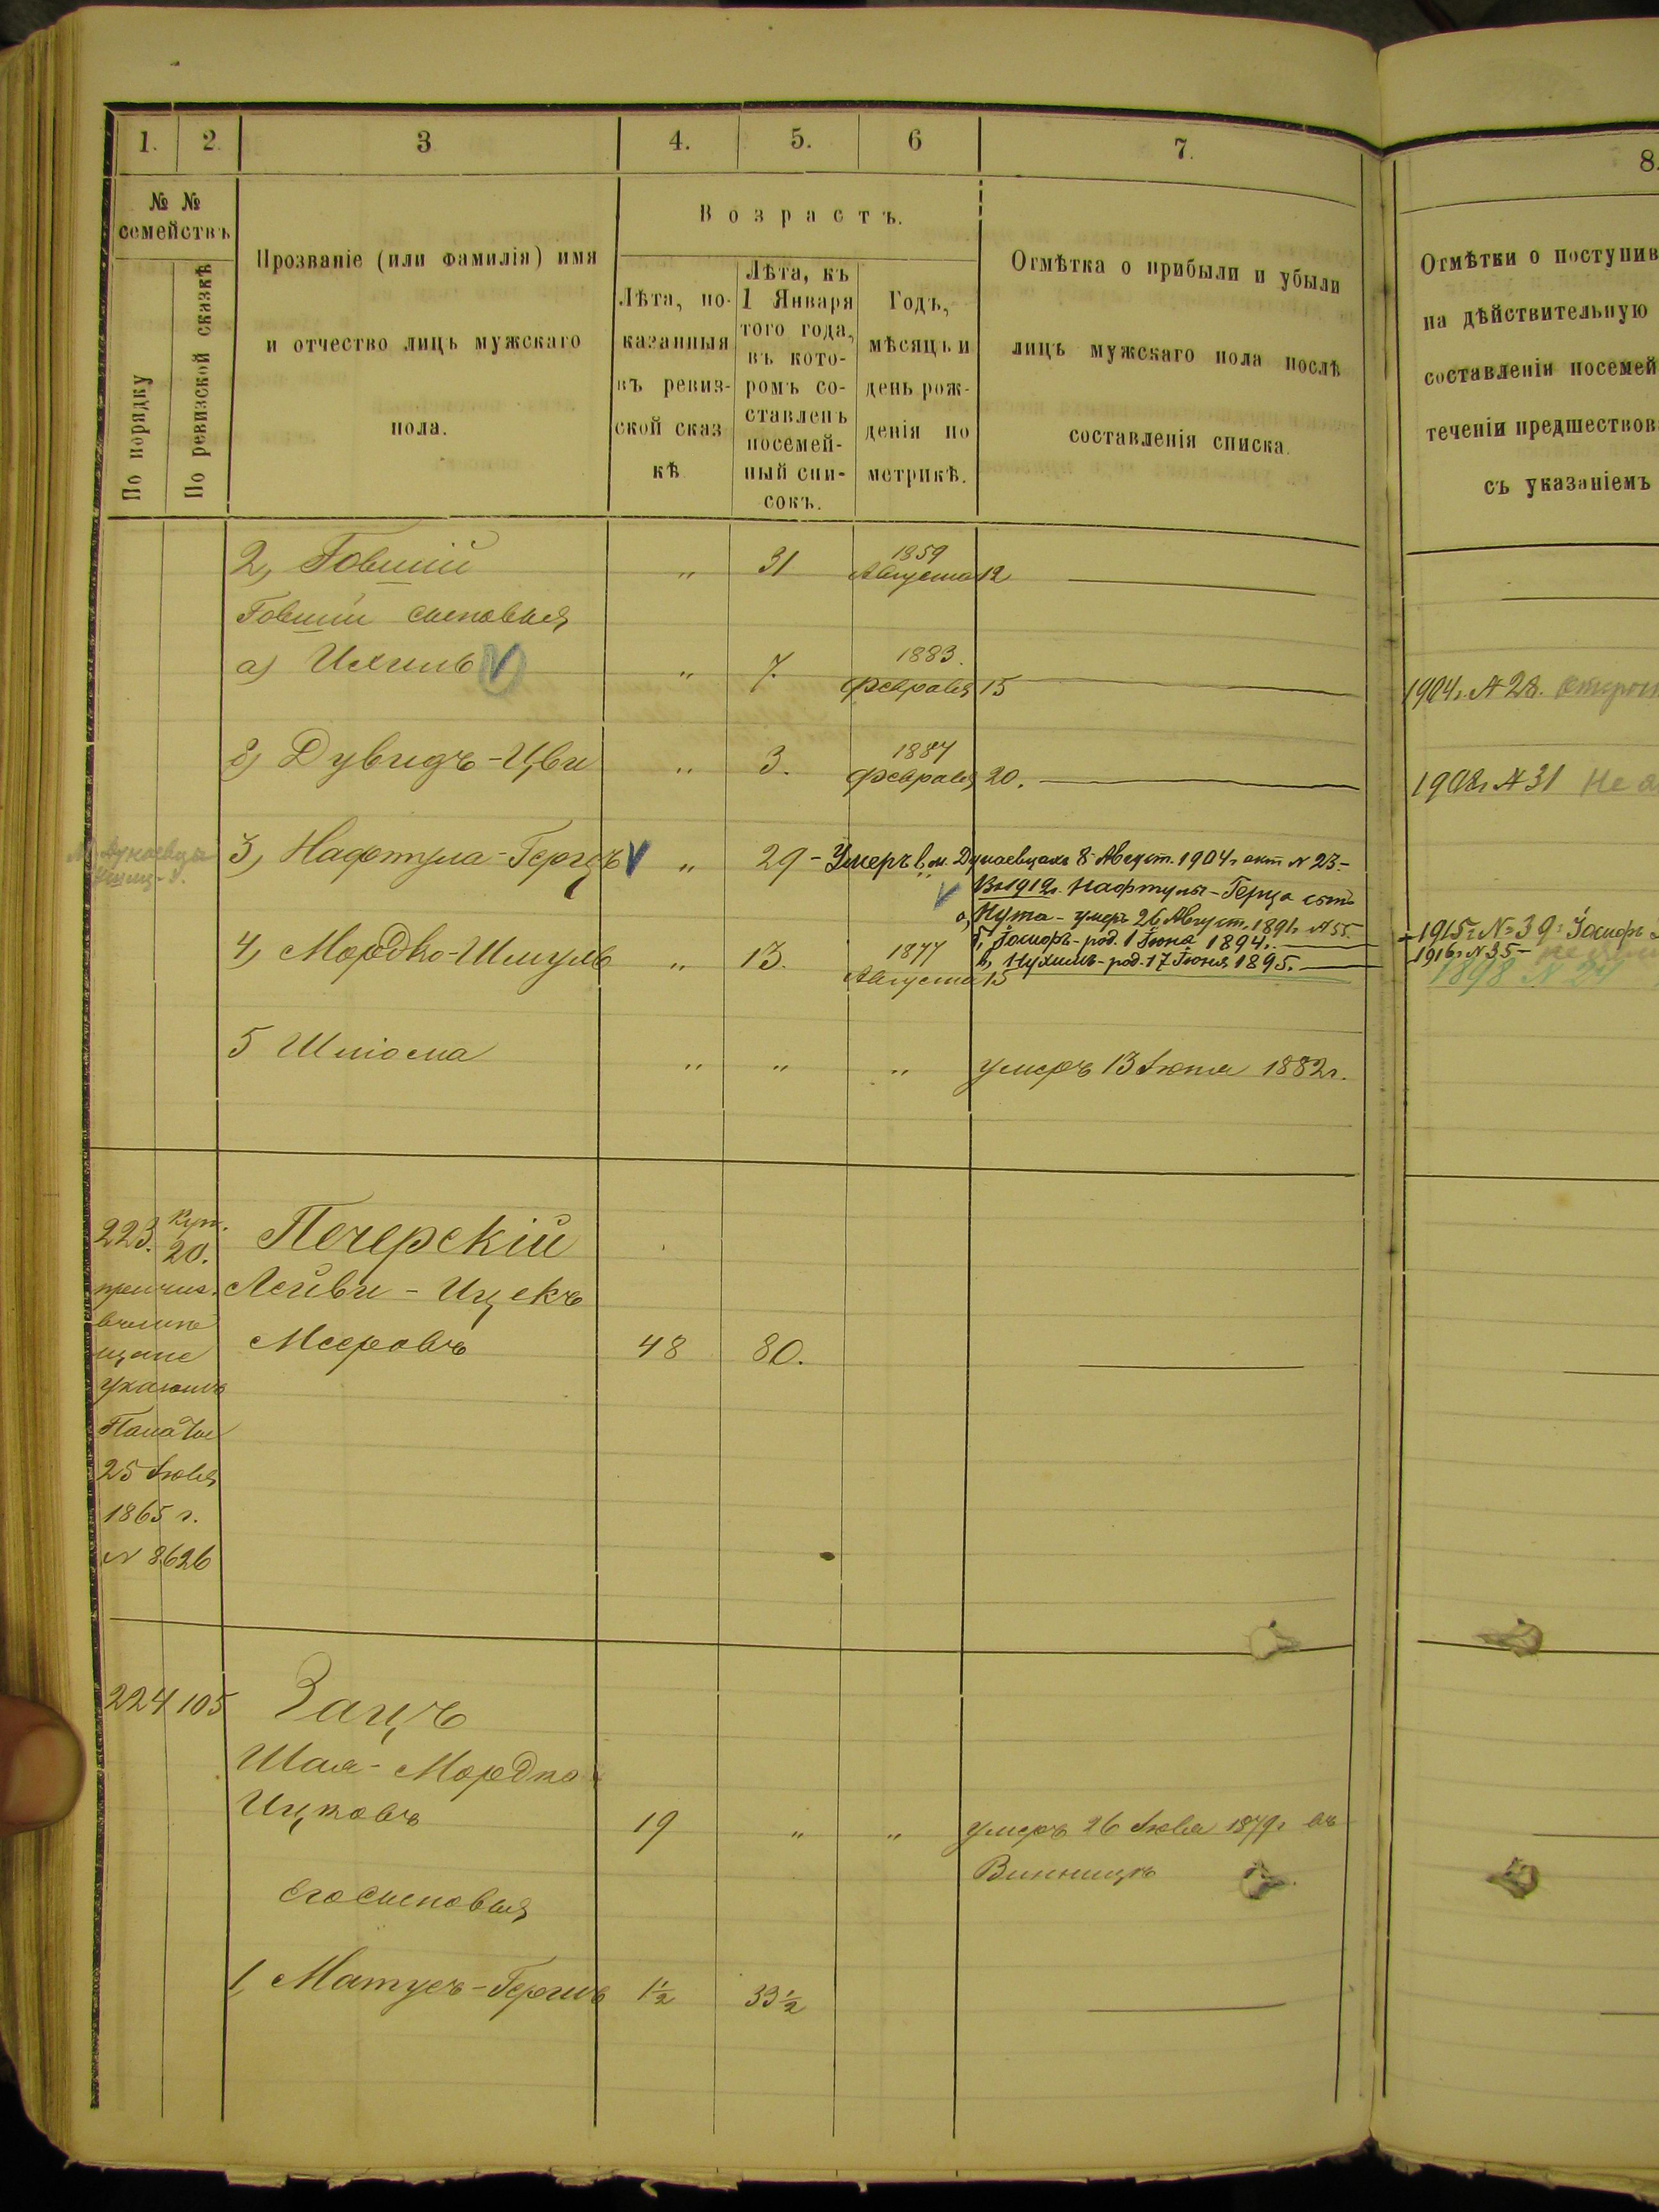 1. 2. 3 4. 5. 6 7. 8.
№ № семействъ
По порядку
По ревизской сказкѣ
Прозваніе (или фамилія) имя
и отчество лицъ мужскаго
пола.
Возрастъ.
Лѣта, по-
казанныя
въ ревиз-
ской сказ
кѣ
Лѣта, къ
1 Января
того года,
въ кото-
ромъ со-
ставленъ
посемей-
ный спи-
сокъ.
Годъ,
мѣсяцъ и
день рож-
денія по
метрикѣ.
Отмѣтка о прибыли и убыли
лицъ мужскаго пола послѣ
составленія списка.
Отмѣтки о поступив
на дѣйствительную
составленіи посемей
теченіи предшествов
съ указаніемъ
2, Говшій " 31 1859 Августа 12
Говшіи сыновья
а) Ихиль V " 7. 1883. Февраля 15
1904 г. № 28.
б) Дувидъ-Цви " 3. 1887 Февраля 20.
1908 г. № 31 Не
3, Нафтула-Герцъ V " 29 - Умеръ в м. Дунаевцахъ 8 Август. 1904 г. акт № 23-
V Въ 1912 г. Нафтулы-Герца сынъ
а, Нута - умеръ 26 Август. 1891 г. № 55.
б, Іосифъ - род. 1 Іюня 1894 г.
в, Нухимъ - род. 17 Іюня 1895.
1915 г. № 39: Іосифъ
1916 г. № 35 -
1898 № 24
4, Мордко-Шмуль " 13. 1877 Августа 15
5 Шліома " " " умеръ 13 Іюня 1882 г.
223. Куп. 20. Печерскій
причис. Лейви - Ицекъ
вмѣща
Мееровъ 48 80.
указомъ
Палаты
25 Іюля
1865 г.
№ 8626
224 105 Зацъ
Шая-Мордко
Ицковъ 19 " " умеръ 26 Іюля 1879 г. въ
Винницѣ
Его сыновья
1, Матусъ-Гершъ 1½ 33½